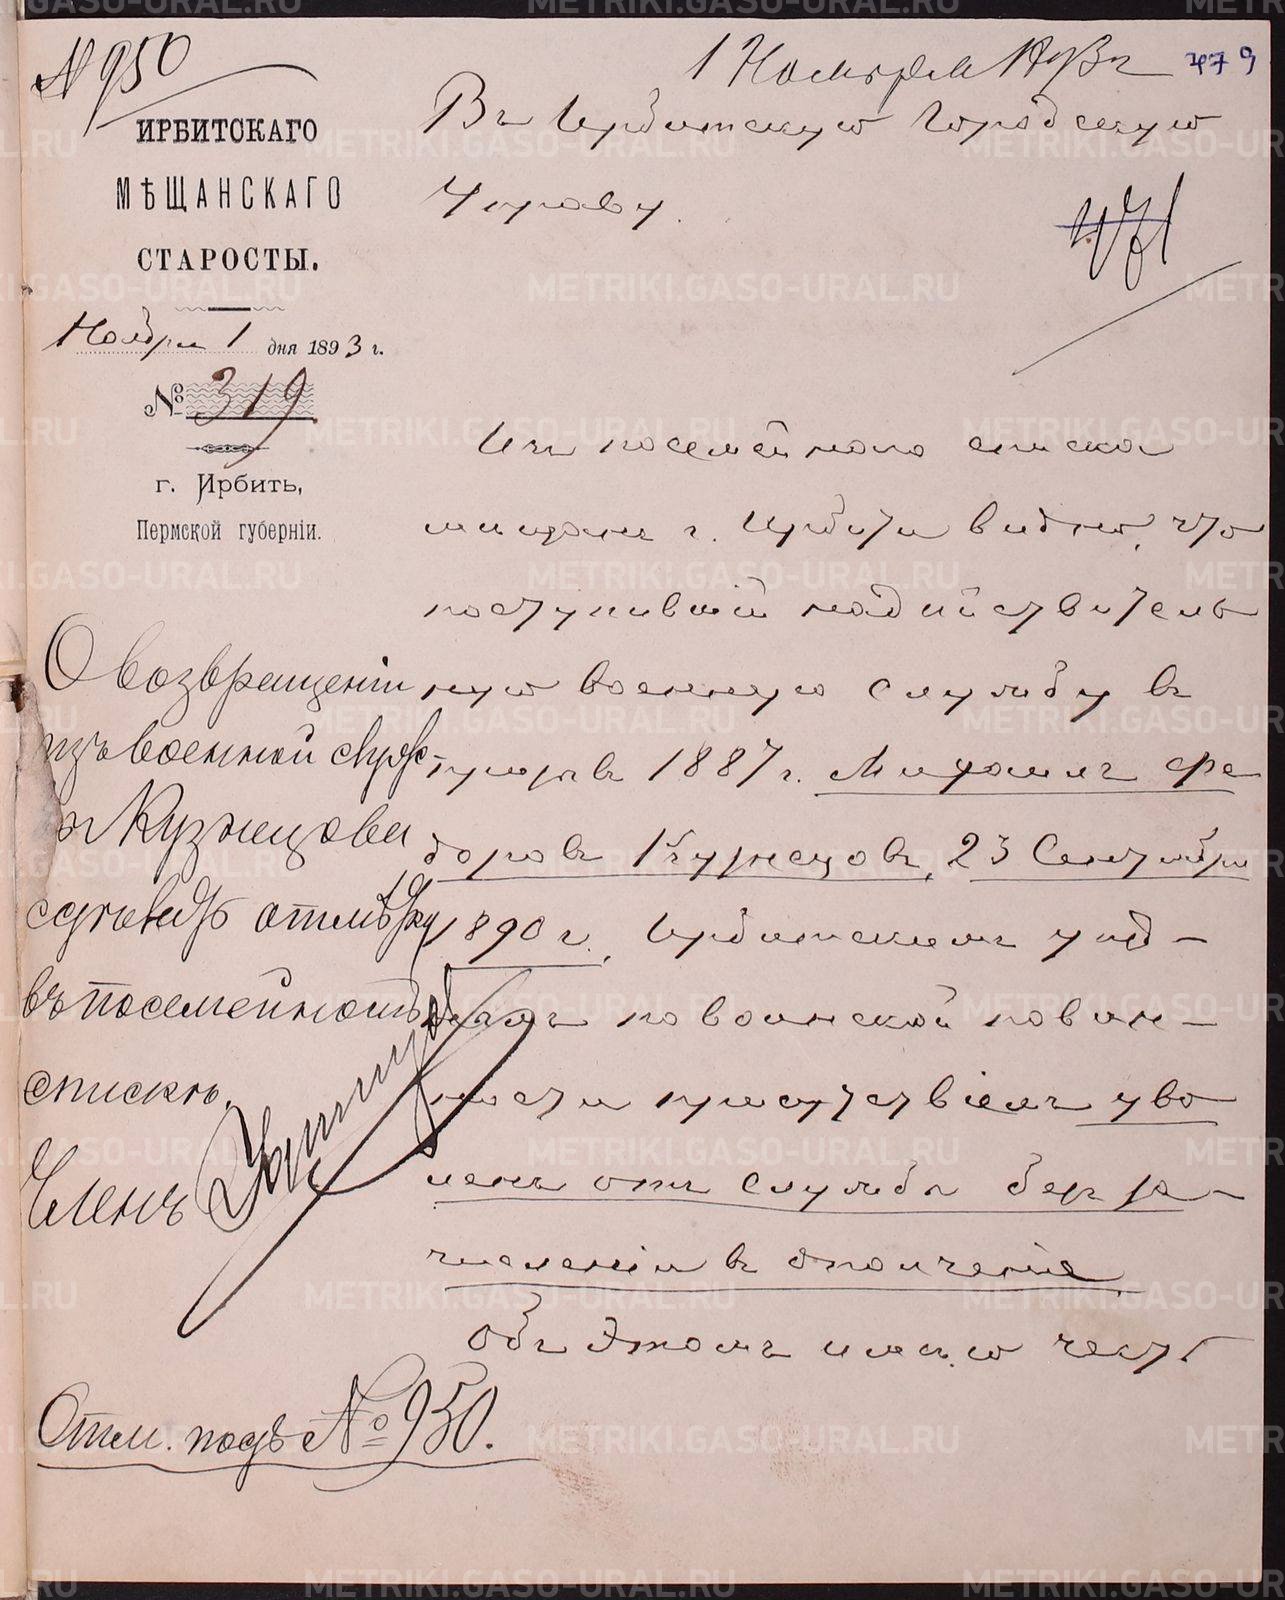 № 950
1 Ноября 1893 г. 479
ИРБИТСКАГО
МѢЩАНСКАГО
СТАРОСТЫ.
Ноября 1 дня 1893 г.
№ 319
г. Ирбить,
Пермской губернiи.
Въ Ирбитскую Городскую
Управу.
471
Изъ посемейного списка
мещанъ г. Ирбити видно, что
поступившiй на действитель
ную военную службу въ
1887 г. Михаилъ Фе
доровъ Кузнецовъ, 23 Сентября
1890 г. Ирбитскимъ уезд-
нымъ по воинской повин-
ности присутствiемъ уво
ленъ отъ службы безъ за-
численiя въ ополченiе
Объ этомъ имею честь
О возвращенiи
изъ военной служ-
бы Кузнецова
сделать отмѣтку
въ посемейномъ
списке.
Членъ
Отм. подъ № 950.
METRIKI.GASO-URAL.RU